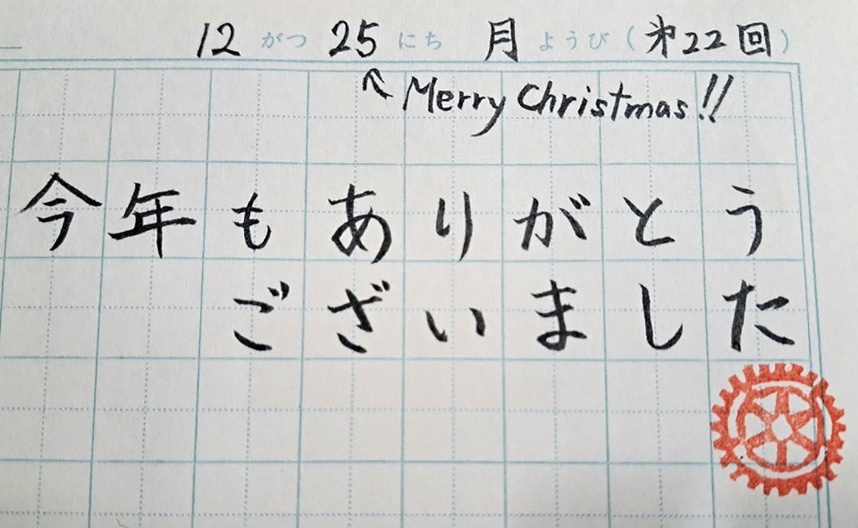 12 がつ 25 にち 月 ようび (第22回)
↖ Merry Christmas!!
今年もありがとう
ございました